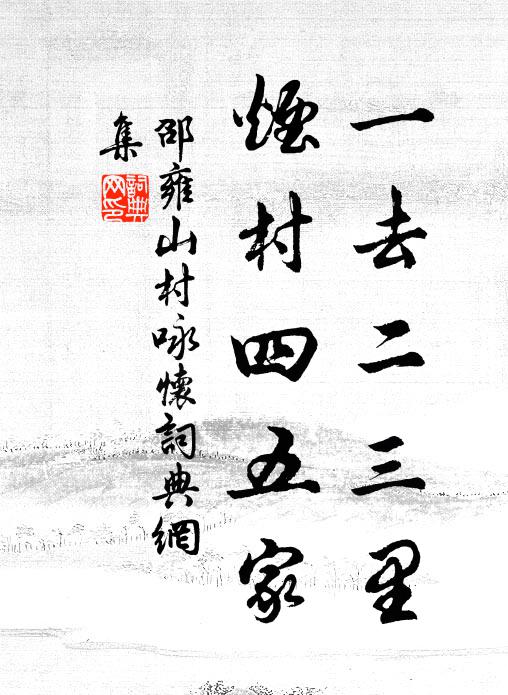 一去二三里
煙村四五家
邵雍山村咏懷詞典網
集
詞典
网印